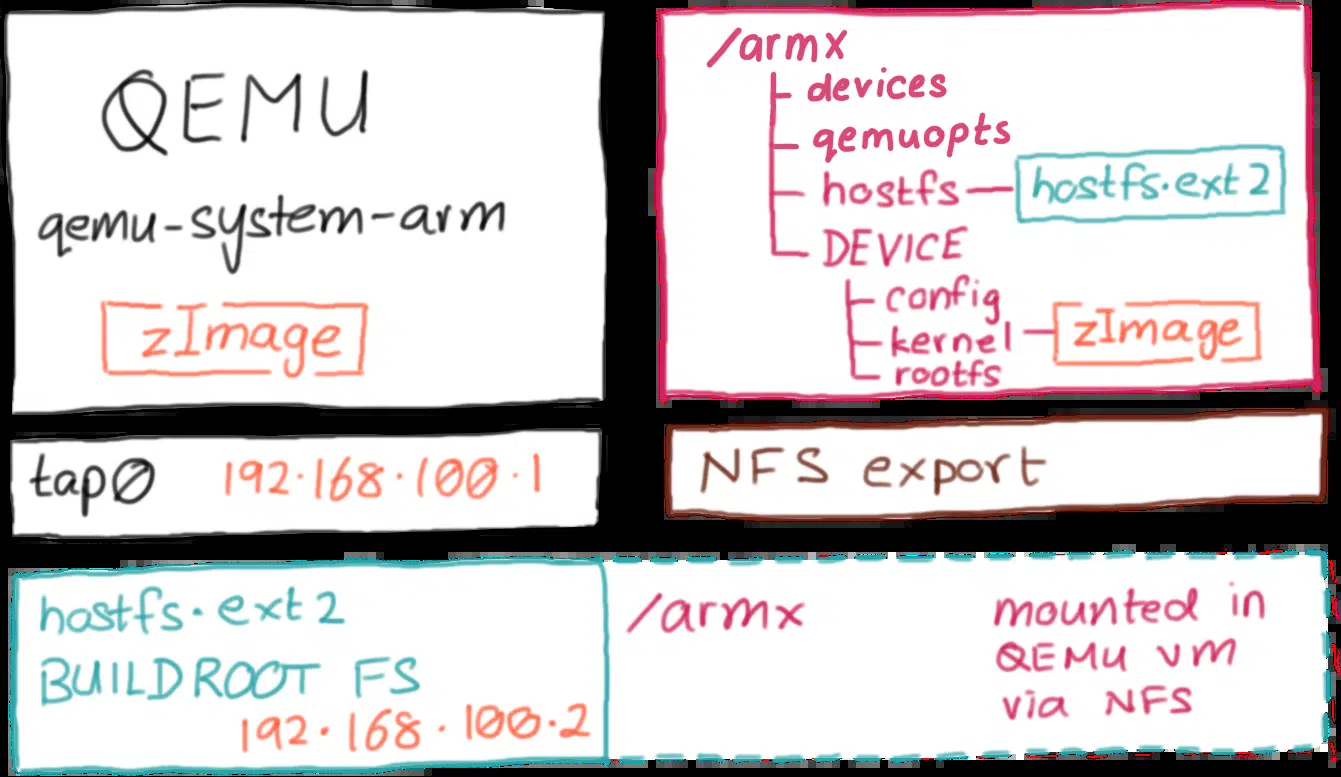 QEMU
qemu-system-arm
zImage
/armx
devices
qemuopts
hostfs hostfs.ext2
DEVICE
config
kernel zImage
rootfs
tap0 192.168.100.1
NFS export
hostfs.ext2
BUILDROOT FS
192.168.100.2
/armx
mounted in
QEMU VM
via NFS